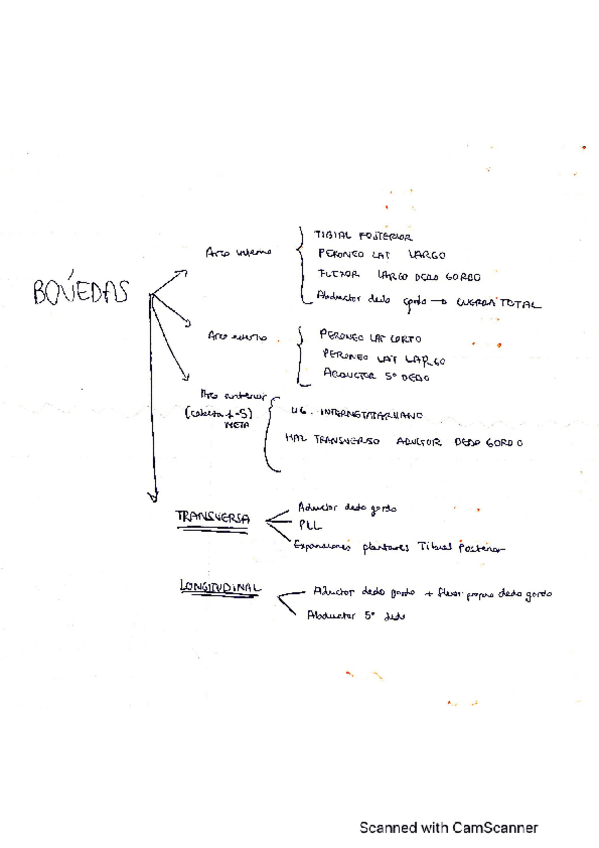 BOVEDAS
Arco interno
TIBIAL POSTERIOR
PERONEO LAT LARGO
FLEXOR LARGO DEDO GORDO
Abductor dedo gordo → CUERDA TOTAL
Arco externo
PERONEO LAT CORTO
PERONEO LAT LARGO
ABDUCTOR 5º DEDO
Arco anterior
(cabeza 1-5)
META
LIG. INTERMETATARSIANO
HAZ TRANSVERSO ADUCTOR DEDO GORDO
TRANSVERSA
Aductor dedo gordo
PLL
Expansiones plantares Tibial Posterior
LONGITUDINAL
Aductor dedo gordo + flexor propio dedo gordo
Abductor 5º dedo
Scanned with CamScanner